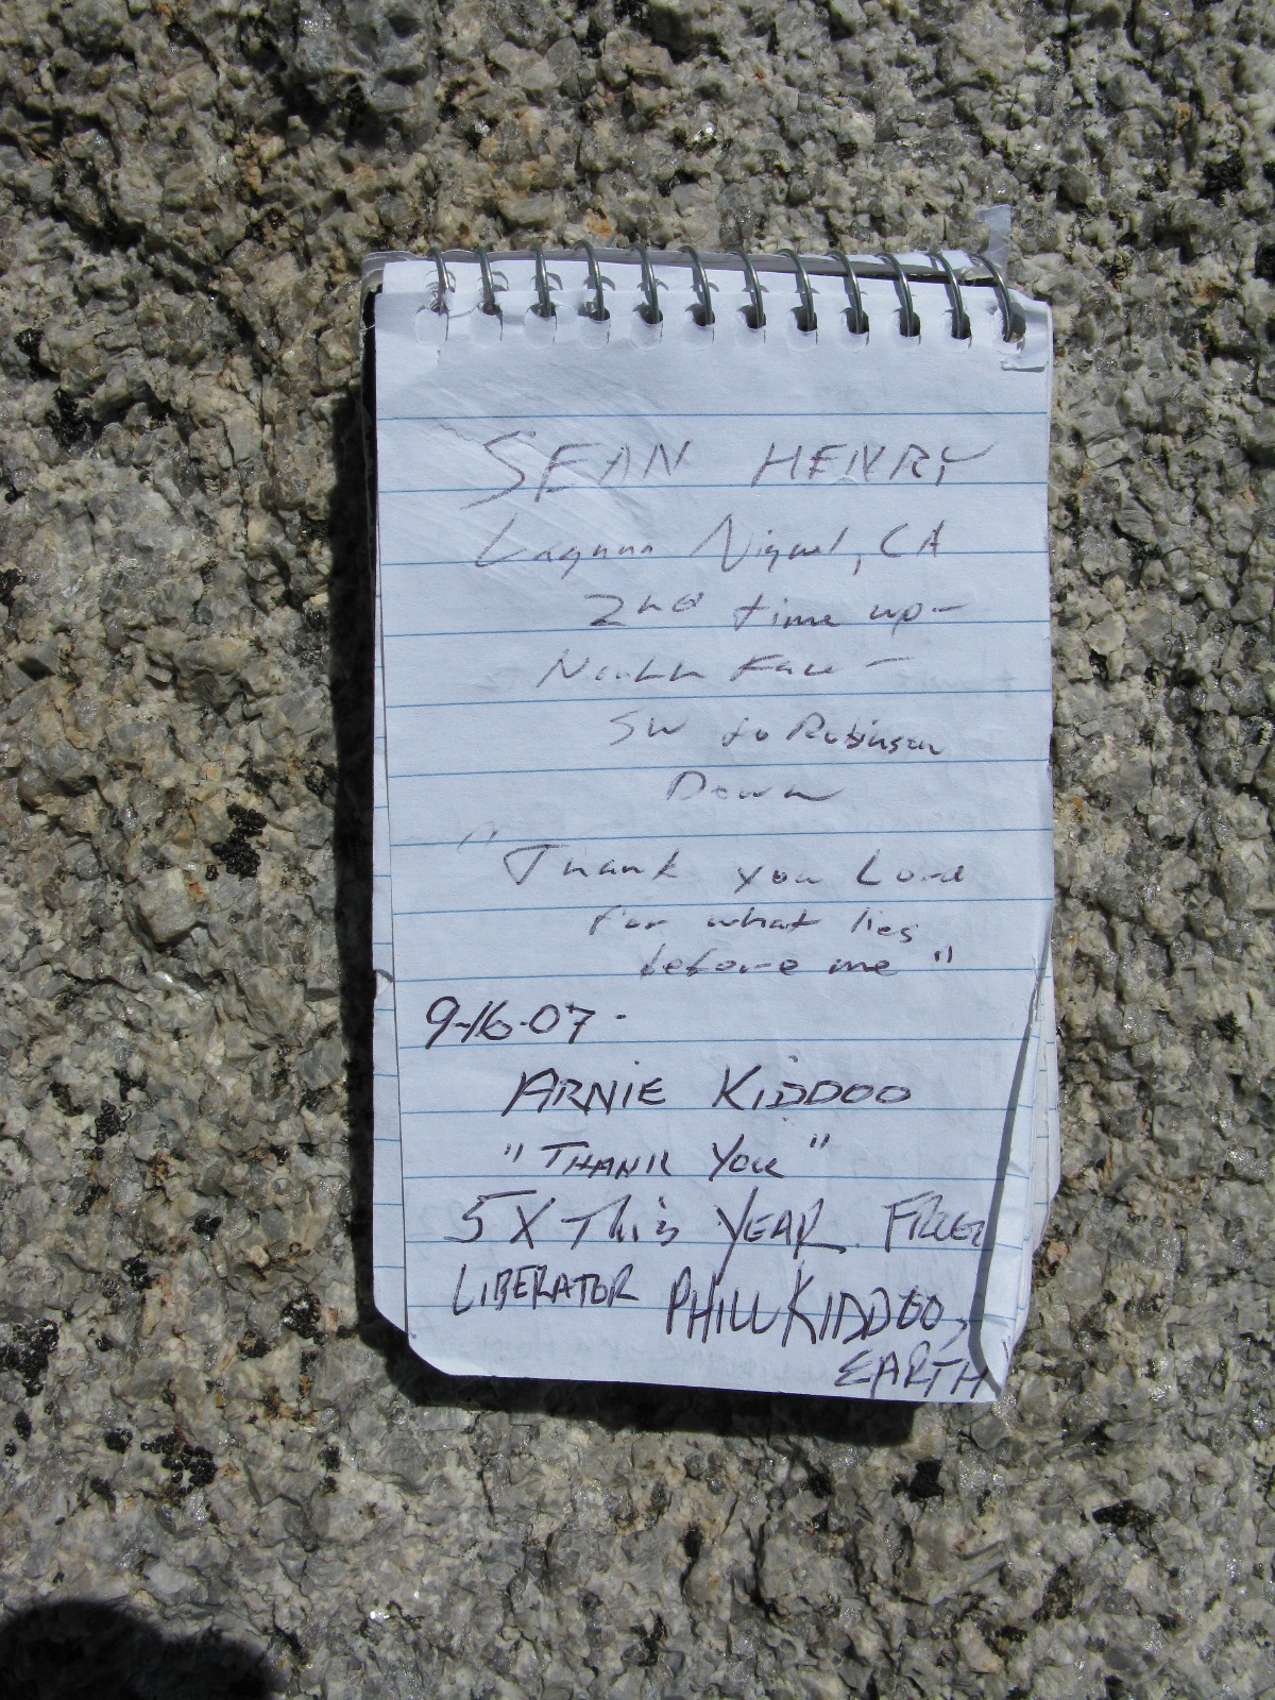 SEAN HENRY
Laguna Niguel, CA
2nd time up-
North Face -
SW to Robinson
Down
"Thank you Lord
for what lies
before me"
9-16-07 -
ARNIE KIDDOO
"THANK YOU"
5X This YEAR
LIBERATOR PHILL KIDDOO,
EARTH